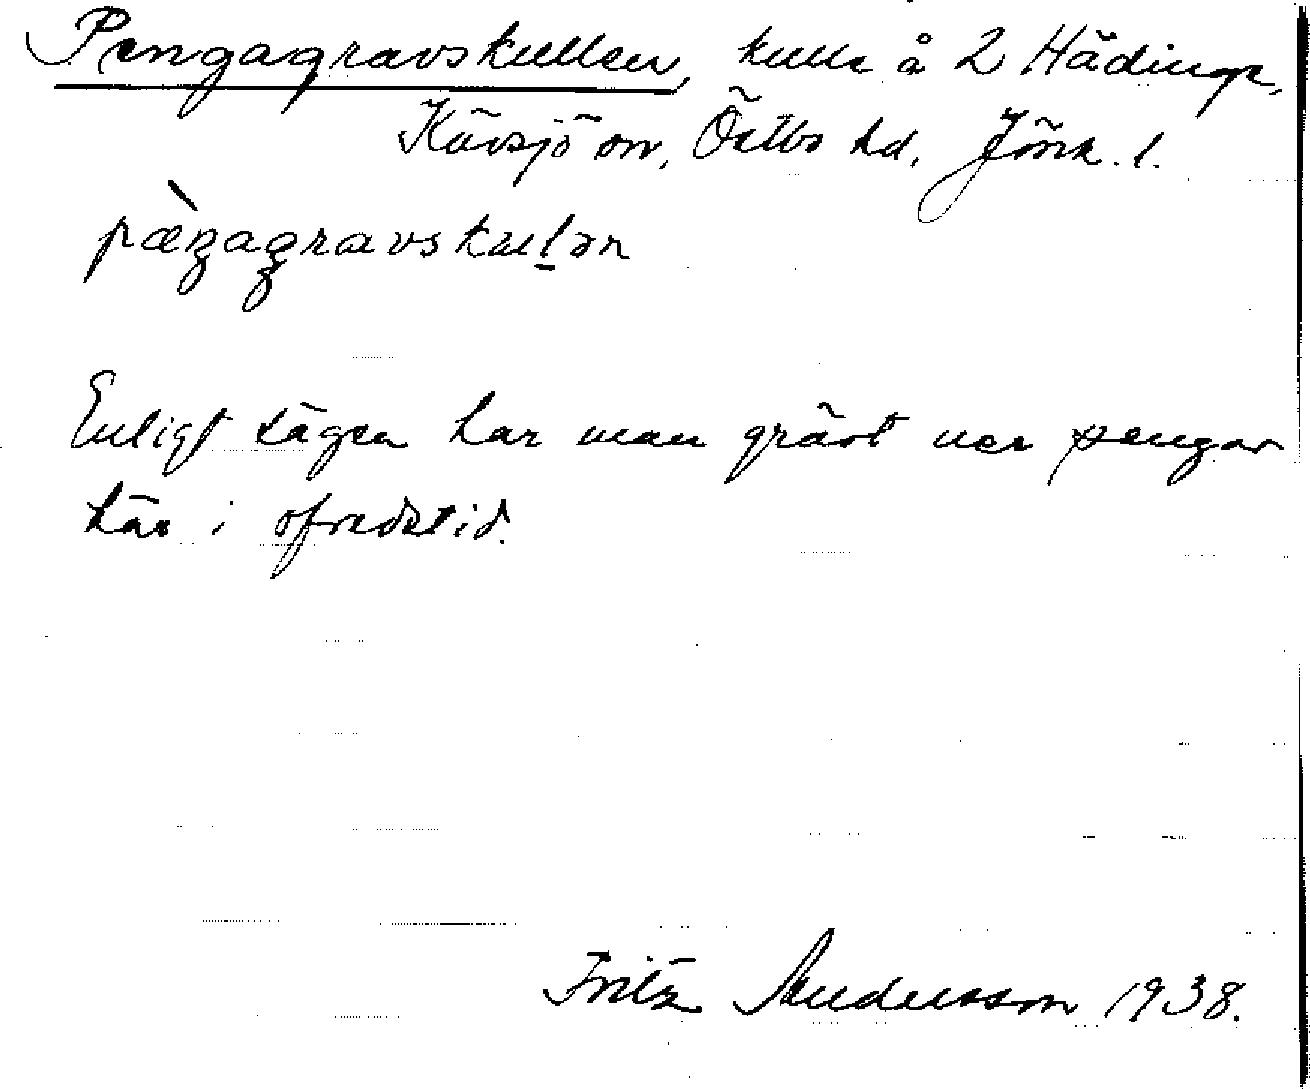 Pengagravskullen, kulle å 2 Hädinge,
Kävsjö sn, Östbo hd, Jönk. l.
pæ̀ŋagravskuḷən
Enligt sägen har man grävt ner pengar
här i ofredstid.
Fritz Andersson 1938.